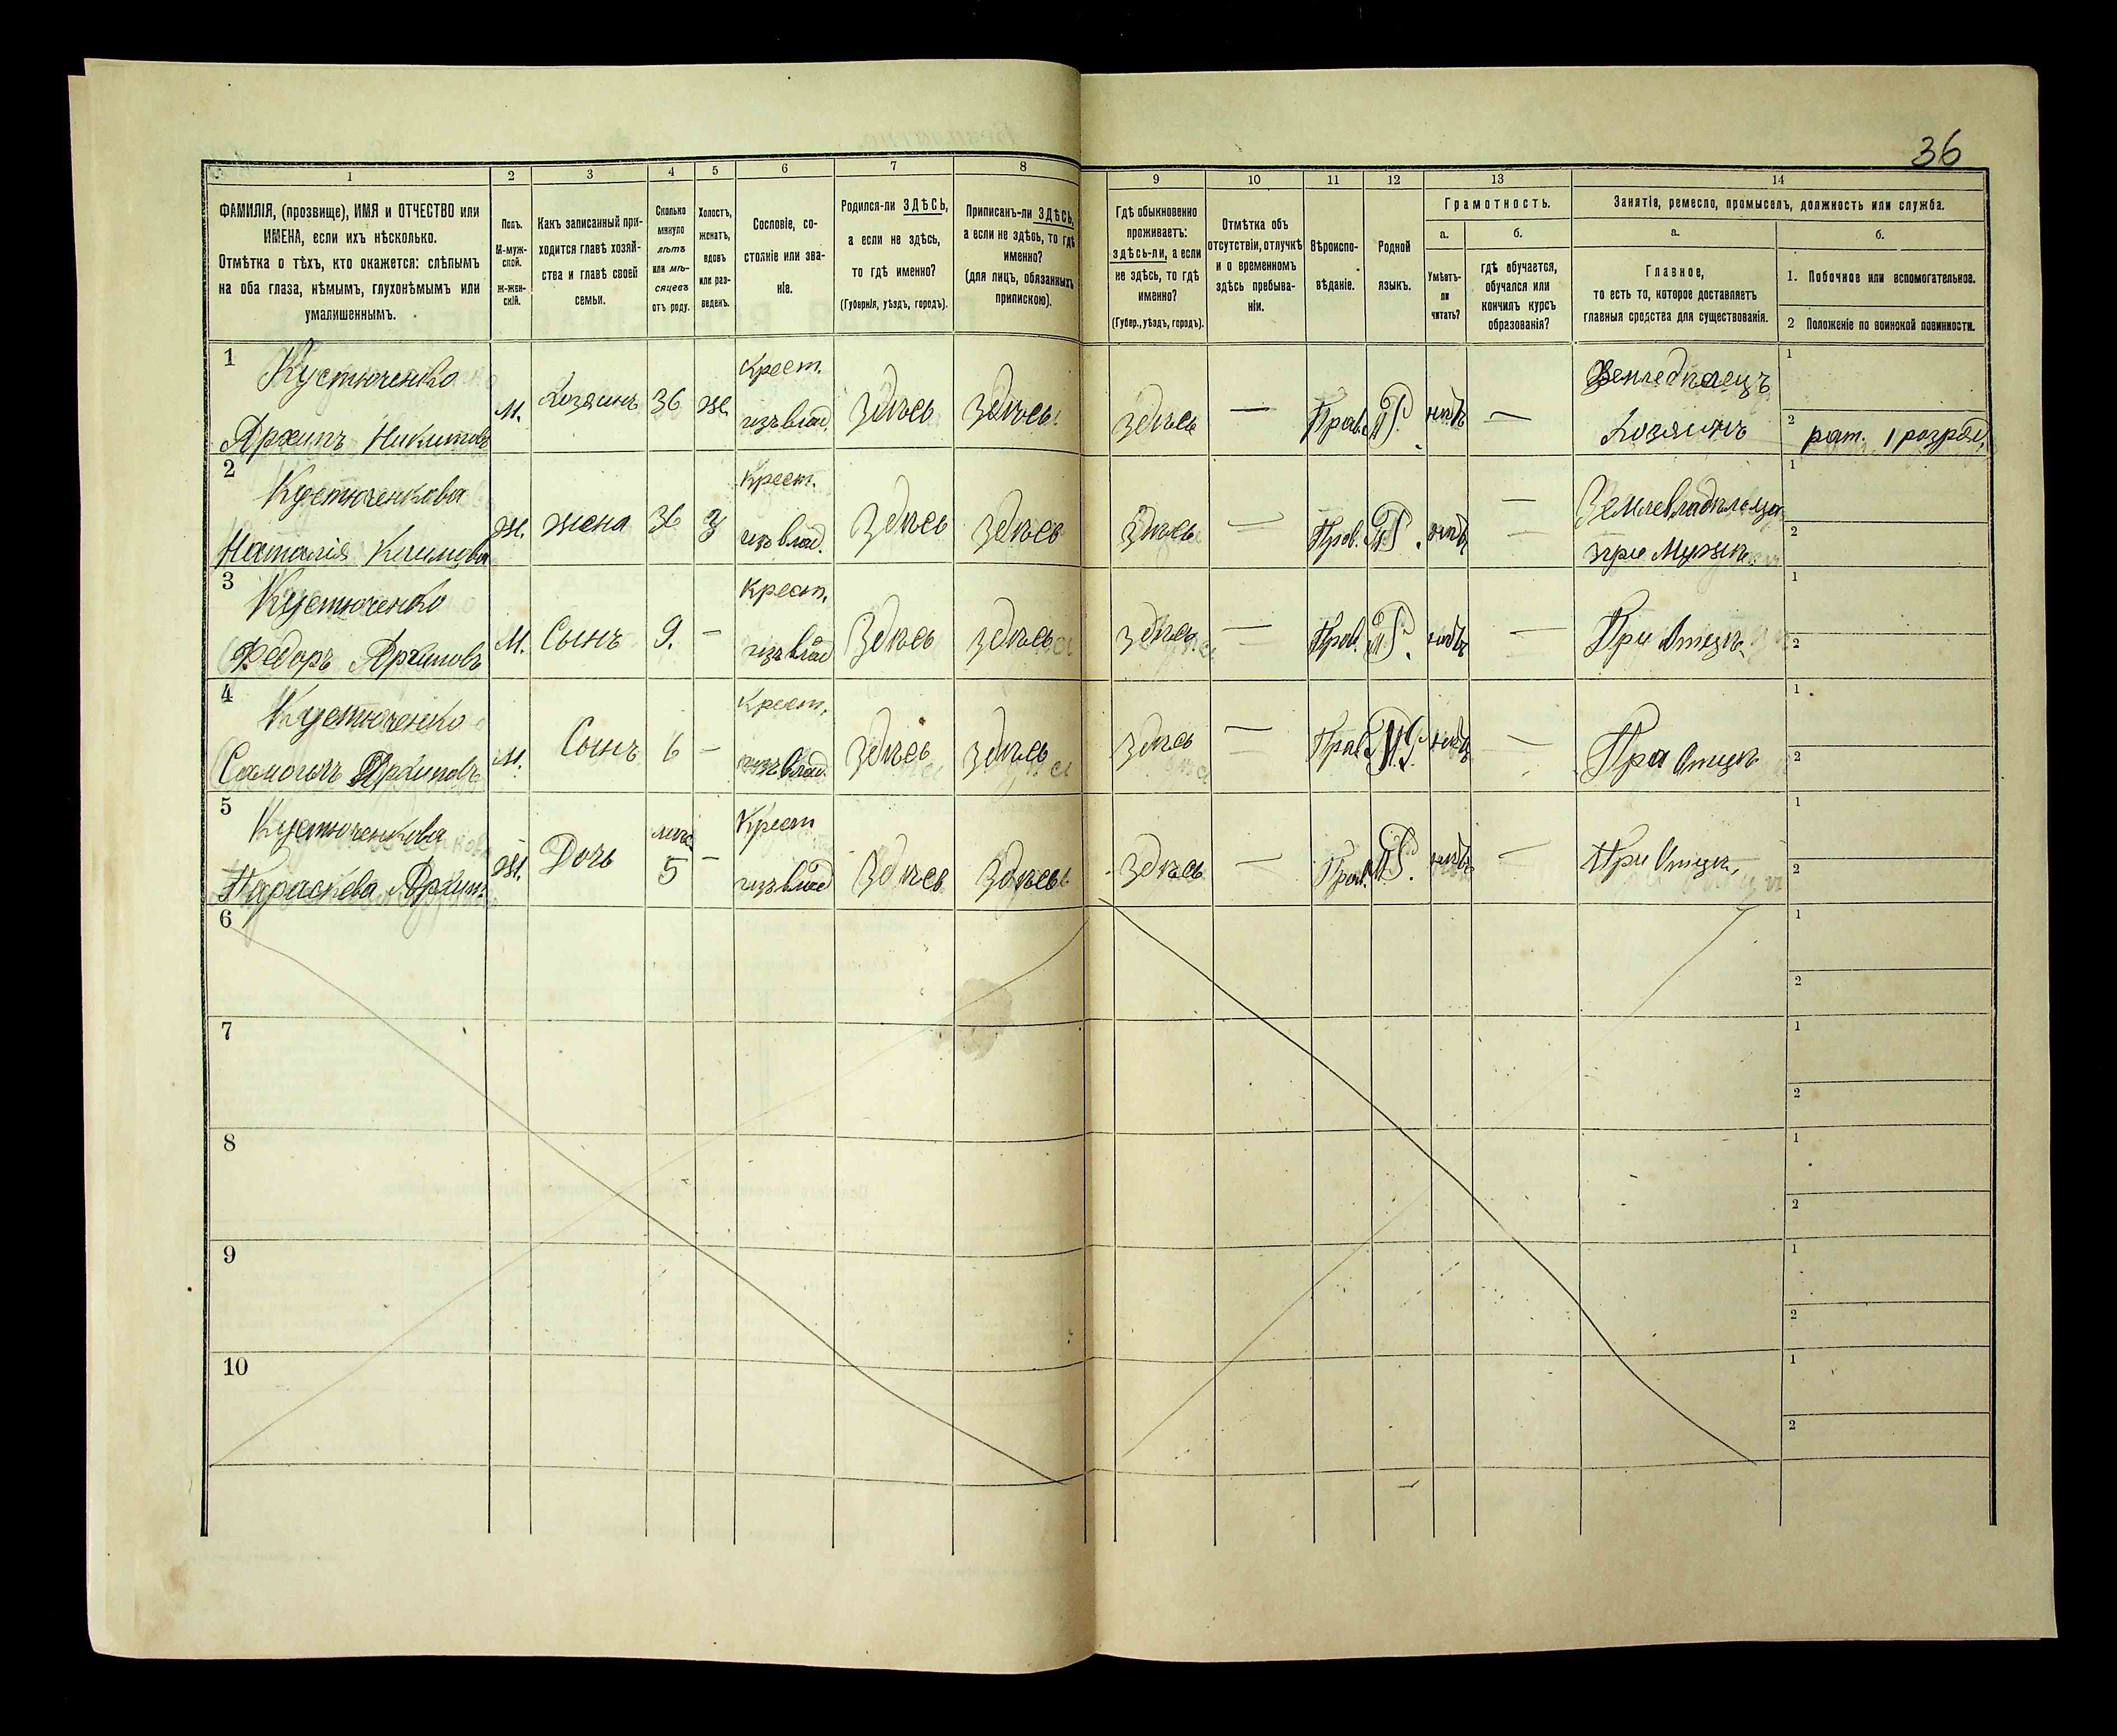 36
1 2 3 4 5 6 7 8 9 10 11 12 13 14
ФАМИЛІЯ, (прозвище), ИМЯ и ОТЧЕСТВО или
ИМЕНА, если ихъ нѣсколько.
Отмѣтка о тѣхъ, кто окажется: слѣпымъ
на оба глаза, нѣмымъ, глухонѣмымъ или
умалишеннымъ.
Полъ.
М-муж-
ской.
Ж-жен-
скій.
Какъ записанный при-
ходится главѣ хозяй-
ства и главѣ своей
семьи.
Сколько
минуло
лѣтъ
или мѣ-
сяцевъ
отъ роду.
Холостъ,
женатъ,
вдовъ
или раз-
веденъ.
Сословіе, со-
стояніе или зва-
ніе.
Родился-ли ЗДѢСЬ,
а если не здѣсь,
то гдѣ именно?
(Губернія, уѣздъ, городъ).
Приписанъ-ли ЗДѢСЬ,
а если не здѣсь, то гдѣ
именно?
(для лицъ, обязанныхъ
припискою).
Гдѣ обыкновенно
проживаетъ:
здѣсь-ли, а если
не здѣсь, то гдѣ
именно?
(Губер., уѣздъ, городъ).
Отмѣтка объ
отсутствіи, отлучкѣ
и о временномъ
здѣсь пребыва-
ніи.
Вѣроиспо-
вѣданіе.
Родной
языкъ.
Грамотность.
а.
Умѣетъ-
ли
читать?
б.
гдѣ обучается,
обучался или
кончилъ курсъ
образованія?
Занятія, ремесло, промыселъ, должность или служба.
а.
Главное,
то есть то, которое доставляетъ
главныя средства для существованія.
б.
1. Побочное или вспомогательное.
2 Положеніе по воинской повинности.
1 Кустюченко Крест. Земледѣлецъ 1
Архипъ Никитовъ М. Хозяинъ 36 же. изъ влад. Здѣсь Здѣсь Здѣсь — Прав. нѣтъ — Хозяинъ 2 рат. 1 разряд.
2 Кустюченкова Крест. — 1
Наталія Ж. жена 36 З изъ влад. Здѣсь Здѣсь Здѣсь — Прав. нѣтъ — при Мужѣ 2
3 Кустюченко Крест. 1
Федоръ Архиповъ М. Сынъ 9. — изъ влад Здѣсь Здѣсь Здѣсь — Прав. нѣтъ — При Отцѣ 2
4 Кустюченко Крест. 1
Архиповъ М. Сынъ 6 — изъ влад. Здѣсь Здѣсь Здѣсь — Прав. нѣтъ — При Отцѣ 2
5 Кустюченкова Крест 1
Параскева Архип. Ж. Дочь 5 — изъ влад Здѣсь Здѣсь Здѣсь — Прав. нѣтъ — При Отцѣ, 2
6 1
2
7 1
2
8 1
2
9 1
2
10 1
2